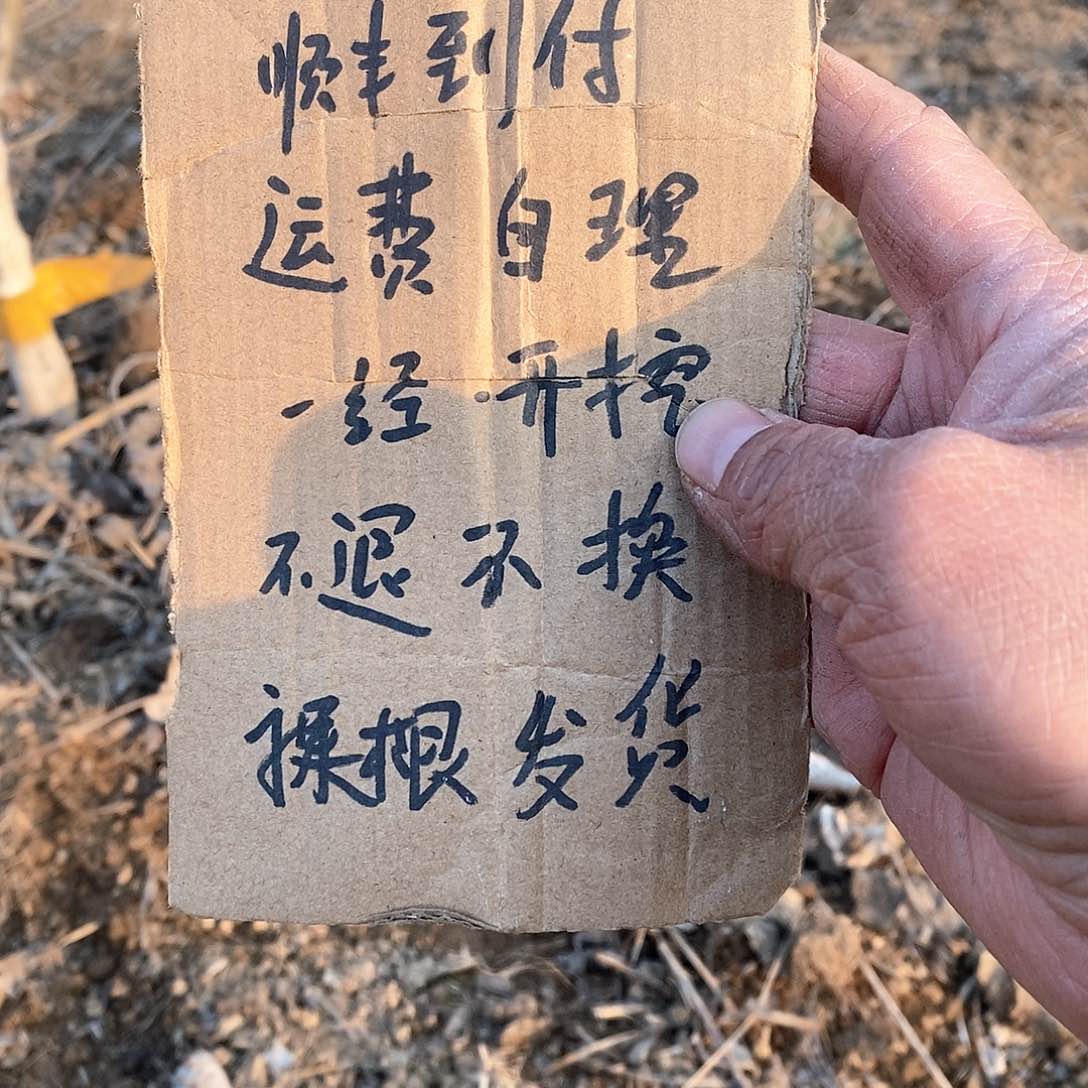 顺丰到付
运费自理
一经开挖
不退不换
裸根发货